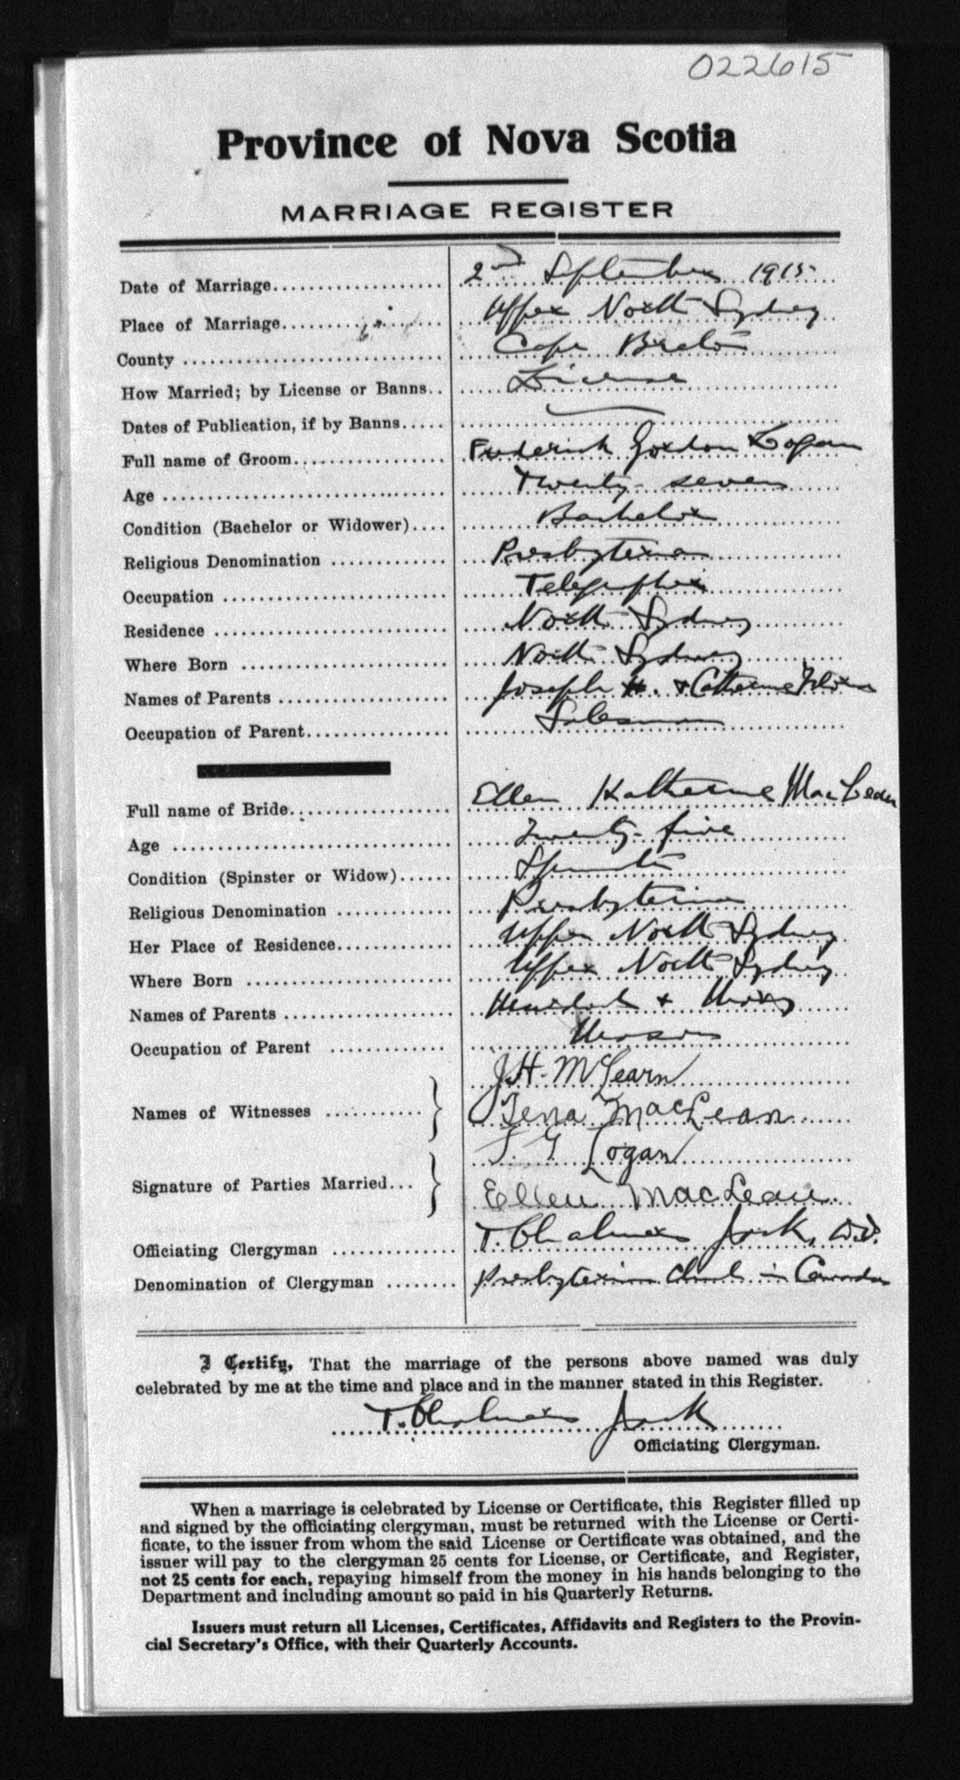 022615
Province of Nova Scotia
MARRIAGE REGISTER
Date of Marriage 2nd September 1915
Place of Marriage Upper North Sydney
County Cape Breton
How Married; by License or Banns License
Dates of Publication, if by Banns
Full name of Groom Frederick Gordon Logan
Age Twenty-seven
Condition (Bachelor or Widower) Bachelor
Religious Denomination Presbyterian
Occupation Telegrapher
Residence North Sydney
Where Born North Sydney
Names of Parents Joseph H. & Catherine
Occupation of Parent Salesman
Full name of Bride Ellen Katherine MacLean
Age Twenty-five
Condition (Spinster or Widow) Spinster
Religious Denomination Presbyterian
Her Place of Residence Upper North Sydney
Where Born Upper North Sydney
Names of Parents Murdoch & Mary
Occupation of Parent Mason
Names of Witnesses J. H. McLearn
Tena MacLean
Signature of Parties Married F. G. Logan
Ellen MacLean.
Officiating Clergyman T. Chalmers Jack, D.D.
Denomination of Clergyman Presbyterian Church in Canada
I Certify, That the marriage of the persons above named was duly
celebrated by me at the time and place and in the manner stated in this Register.
T. Chalmers Jack
Officiating Clergyman.
When a marriage is celebrated by License or Certificate, this Register filled up
and signed by the officiating clergyman, must be returned with the License or Certi-
ficate, to the issuer from whom the said License or Certificate was obtained, and the
issuer will pay to the clergyman 25 cents for License, or Certificate, and Register,
not 25 cents for each, repaying himself from the money in his hands belonging to the
Department and including amount so paid in his Quarterly Returns.
Issuers must return all Licenses, Certificates, Affidavits and Registers to the Provin-
cial Secretary's Office, with their Quarterly Accounts.